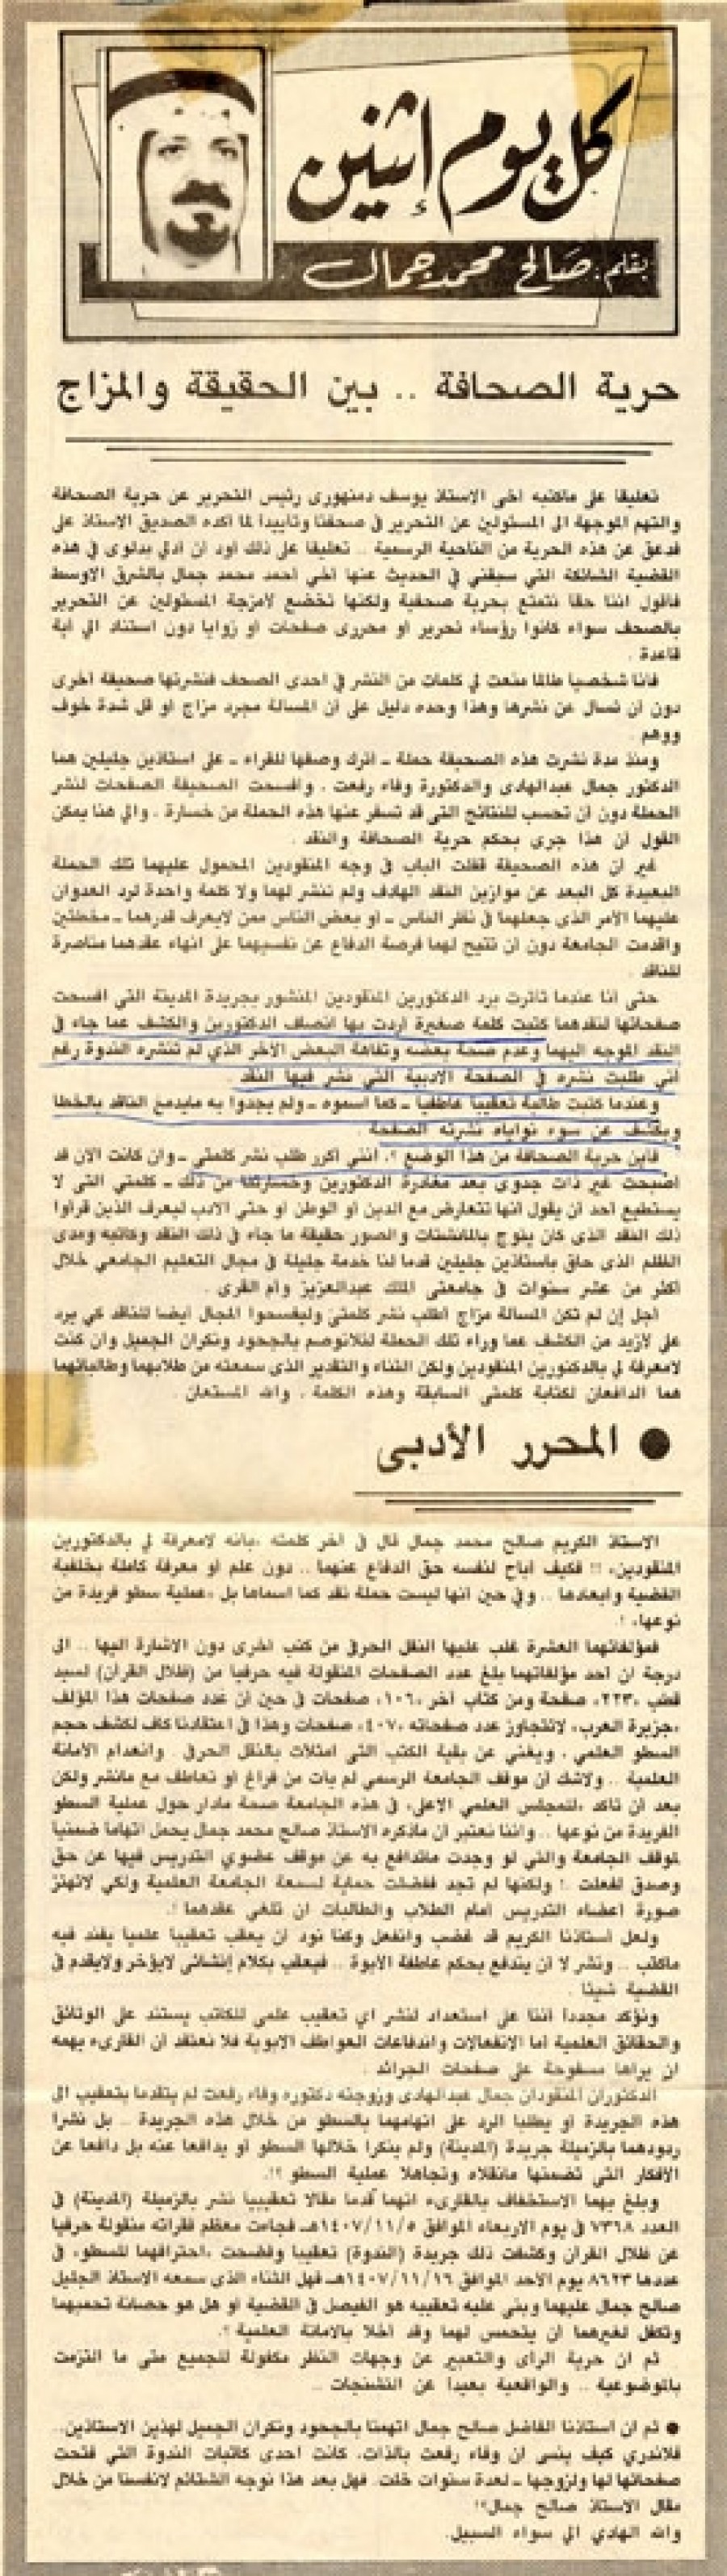 كل يوم إثنين
بقلم: صالح محمد جمال
حرية الصحافة .. بين الحقيقة والمزاج
تعليقا على ماكتبه أخي الاستاذ يوسف دمنهوري رئيس التحرير عن حرية الصحافة
والتهم الموجهة الى المسئولين عن التحرير في صحفنا وتأييدا لما أكده الصديق الاستاذ على
فدعق عن هذه الحرية من الناحية الرسمية .. تعليقا على ذلك أود ان أدلي بدلوى في هذه
القضية الشائكة التي سبقني في الحديث عنها أخي احمد محمد جمال بالشرق الاوسط
فأقول اننا حقا نتمتع بحرية صحفية ولكنها تخضع لأمزجة المسئولين عن التحرير
بالصحف سواء كانوا رؤساء تحرير او محررى صفحات او زوايا دون استناد الى أية
قاعدة .
فأنا شخصيا طالما منعت لي كلمات من النشر في احدى الصحف فنشرتها صحيفة أخرى
دون أن تسأل عن نشرها وهذا وحده دليل على أن المسألة مجرد مزاج او قل شدة خوف
ووهم .
ومنذ مدة نشرت هذه الصحيفة حملة ـ اترك وصفها للقراء ـ على استاذين جليلين هما
الدكتور جمال عبدالهادى والدكتورة وفاء رفعت ، وافسحت الصحيفة الصفحات لنشر
الحملة دون أن تحسب للنتائج التي قد تسفر عنها هذه الحملة من خسارة . والى هنا يمكن
القول أن هذا جرى بحكم حرية الصحافة والنقد .
غير أن هذه الصحيفة قفلت الباب في وجه المنقودين المحمول عليهما تلك الحملة
البعيدة كل البعد عن موازين النقد الهادف ولم تنشر لهما ولا كلمة واحدة لرد العدوان
عليهما الأمر الذى جعلهما في نظر الناس ـ او بعض الناس ممن لايعرف قدرهما ـ مخطئين
واقدمت الجامعة دون أن تتيح لهما فرصة الدفاع عن نفسيهما على انهاء عقدهما مناصرة
للناقد .
حتى أنا عندما تأثرت برد الدكتورين المنقودين المنشور بجريدة المدينة التي افسحت
صفحاتها لنقدهما كتبت كلمة صغيرة أردت بها انصاف الدكتورين والكشف عما جاء في
النقد الموجه اليهما وعدم صحة بعضه وتفاهة البعض الآخر الذي لم تنشره الندوة رغم
أني طلبت نشره في الصفحة الادبية التي نشر فيها النقد .
وعندما كتبت طالبة تعقيبا عاطفيا ـ كما أسموه ـ ولم يجدوا به مايدمغ الناقد بالخطأ
ويكشف عن سوء نواياه نشرته الصفحة .
فأين حرية الصحافة من هذا الوضع ؟. انني أكرر طلب نشر كلمتي ـ وان كانت الآن قد
اصبحت غير ذات جدوى بعد مغادرة الدكتورين وخسارتنا من ذلك ـ كلمتي التي لا
يستطيع احد أن يقول أنها تتعارض مع الدين أو الوطن أو حتى الادب ليعرف الذين قرأوا
ذلك النقد الذى كان يتوج بالمانشتات والصور حقيقة ما جاء في ذلك النقد وكاتبه ومدى
الظلم الذى حاق باستاذين جليلين قدما لنا خدمة جليلة في مجال التعليم الجامعي خلال
أكثر من عشر سنوات في جامعتى الملك عبدالعزيز وأم القرى .
أجل إن لم تكن المسألة مزاج أطلب نشر كلمتى وليفسحوا المجال أيضا للناقد كي يرد
على لأزيد من الكشف عما وراء تلك الحملة لئلانوصم بالجحود ونكران الجميل وان كنت
لامعرفة لي بالدكتورين المنقودين ولكن الثناء والتقدير الذى سمعته من طلابهما وطالباتهما
هما الدافعان لكتابة كلمتى السابقة وهذه الكلمة . والله المستعان
● المحرر الأدبى
الاستاذ الكريم صالح محمد جمال قال في آخر كلمته «بأنه لامعرفة لي بالدكتورين
المنقودين» !! فكيف أباح لنفسه حق الدفاع عنهما .. دون علم او معرفة كاملة بخلفية
القضية وابعادها .. وفي حين انها ليست حملة نقد كما اسماها بل «عملية سطو فريدة من
نوعها» !.
فمؤلفاتهما العشرة غلب عليها النقل الحرفي من كتب اخرى دون الاشارة اليها .. الى
درجة ان احد مؤلفاتهما بلغ عدد الصفحات المنقولة فيه حرفيا من (ظلال القرآن) لسيد
قطب «٢٢٣» صفحة ومن كتاب آخر «١٠٦» صفحات في حين أن عدد صفحات هذا المؤلف
«جزيرة العرب» لاتتجاوز عدد صفحاته «٤٠٧» صفحات وهذا في اعتقادنا كاف لكشف حجم
السطو العلمي . ويغني عن بقية الكتب التي امتلأت بالنقل الحرفي . وانعدام الامانة
العلمية .. ولاشك أن موقف الجامعة الرسمي لم يأت من فراغ او تعاطف مع مانشر ولكن
بعد أن تأكد «للمجلس العلمي الأعلى» في هذه الجامعة صحة مادار حول عملية السطو
الفريدة من نوعها .. واننا نعتبر ان ماذكره الاستاذ صالح محمد جمال يحمل اتهاما ضمنيا
لموقف الجامعة والتي لو وجدت ماتدافع به عن موقف عضوي التدريس فيها عن حق
وصدق لفعلت .! ولكنها لم تجد ففضلت حماية لسمعة الجامعة العلمية ولكي لاتهتز
صورة أعضاء التدريس أمام الطلاب والطالبات ان تلغي عقدهما !.
ولعل أستاذنا الكريم قد غضب وانفعل وكنا نود ان يعقب تعقيبا علميا يفند فيه
ماكتب .. ونشر لا ان يندفع بحكم عاطفة الأبوة .. فيعقب بكلام إنشائى لايؤخر ولايقدم في
القضية شيئا .
ونؤكد مجددا اننا على استعداد لنشر اي تعقيب علمي للكاتب يستند على الوثائق
والحقائق العلمية اما الانفعالات واندفاعات العواطف الابوية فلا نعتقد أن القارىء يهمه
ان يراها مسفوحة على صفحات الجرائد .
الدكتوران المنقودان جمال عبدالهادى وزوجته دكتوره وفاء رفعت لم يتقدما بتعقيب الى
هذه الجريدة او يطلبا الرد على اتهامهما بالسطو من خلال هذه الجريدة .. بل نشرا
ردودهما بالزميلة جريدة (المدينة) ولم ينكرا خلالها السطو او يدافعا عنه بل دافعا عن
الأفكار التى تضمنها مانقلاه وتجاهلا عملية السطو ؟!.
وبلغ بهما الاستخفاف بالقارىء انهما قدما مقالا تعقيبيا نشر بالزميلة (المدينة) في
العدد ٧٣٦٨ في يوم الاربعاء الموافق ١٤٠٧/١١/٥هـ فجاءت معظم فقراته منقولة حرفيا
عن ظلال القرآن وكشفت ذلك جريدة (الندوة) تعقيبا وفضحت «احترافهما للسطو» في
عددها ٨٦٢٣ يوم الأحد الموافق ١٤٠٧/١١/١٦هـ فهل الثناء الذى سمعه الاستاذ الجليل
صالح جمال عليهما وبنى عليه تعقيبه هو الفيصل في القضية أو هل هو حصانة تحميهما
وتكفل لغيرهما أن يتحمس لهما وقد أخلا بالامانة العلمية ؟.
ثم ان حرية الرأى والتعبير عن وجهات النظر مكفولة للجميع متى ما التزمت
بالموضوعية .. والواقعية بعيدا عن التشنجات ..
● ثم ان استاذنا الفاضل صالح جمال اتهمنا بالجحود ونكران الجميل لهذين الاستاذين..
فلاندري كيف ينسى ان وفاء رفعت بالذات، كانت احدى كاتبات الندوة التي فتحت
صفحاتها لها ولزوجها ـ لعدة سنوات خلت. فهل بعد هذا نوجه الشتائم لانفسنا من خلال
مقال الاستاذ صالح جمال؟!
والله الهادي الى سواء السبيل.